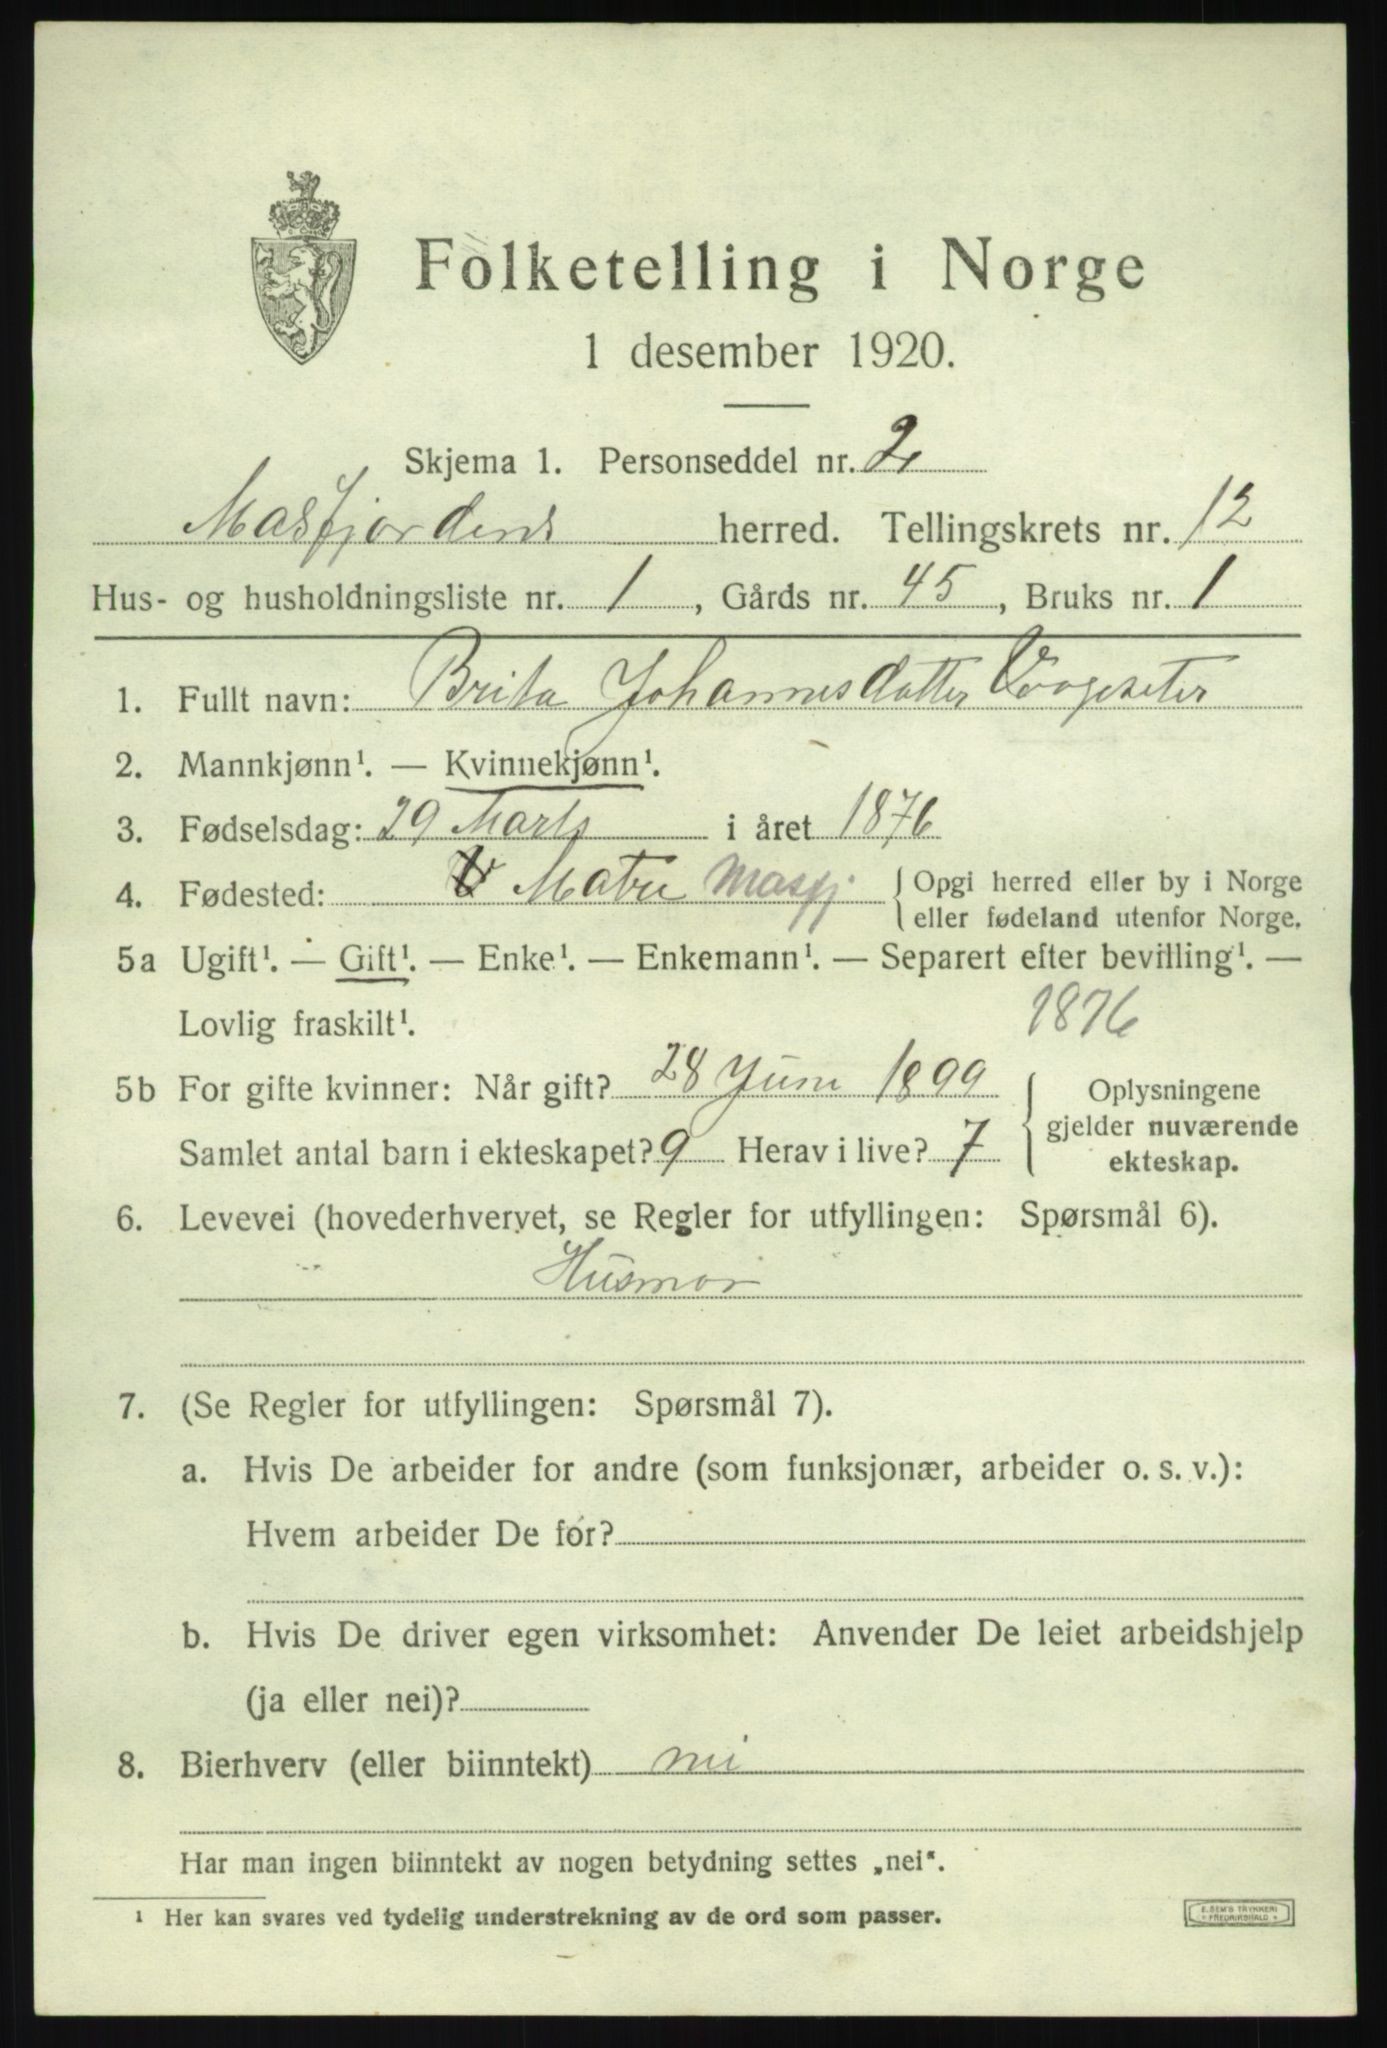 Folketelling i Norge
1 desember 1920.
Skjema 1. Personseddel nr. 2
Masfjordens herred. Tellingskrets nr. 12
Hus- og husholdningsliste nr. 1, Gårds nr. 45, Bruks nr. 1
1. Fullt navn: Brita Johannesdatter Vaageseter
2. Mannkjønn¹. — Kvinnekjønn¹.
3. Fødselsdag: 29 Marts i året 1876
4. Fødested: Matre Masfj { Opgi herred eller by i Norge
eller fødeland utenfor Norge.
5a Ugift¹. — Gift¹. — Enke¹. — Enkemann¹. — Separert efter bevilling¹. —
Lovlig fraskilt¹. 1876
5b For gifte kvinner: Når gift? 28 Juni 1899 { Oplysningene
gjelder nuværende
ekteskap.
Samlet antal barn i ekteskapet? 9 Herav i live? 7
6. Levevei (hovederhvervet, se Regler for utfyllingen: Spørsmål 6).
Husmor
7. (Se Regler for utfyllingen: Spørsmål 7).
a. Hvis De arbeider for andre (som funksjonær, arbeider o. s. v.):
Hvem arbeider De for?
b. Hvis De driver egen virksomhet: Anvender De leiet arbeidshjelp
(ja eller nei)?
8. Bierhverv (eller biinntekt) nei
Har man ingen biinntekt av nogen betydning settes „nei".
¹ Her kan svares ved tydelig understrekning av de ord som passer.
E. SEM'S TRYKKERI
FREDRIKSHALD